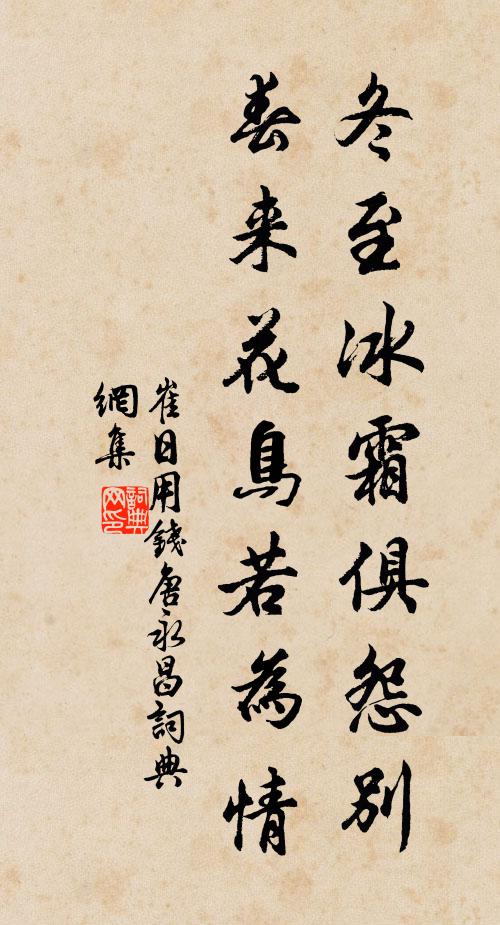 冬至冰霜俱怨别
春来花鳥若為情
崔日用錢唐永昌詞典
網集
詞典
网印